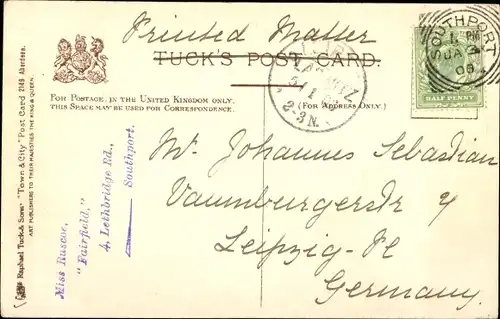 Printed Matter
TUCK'S POST CARD.
FOR POSTAGE, IN THE UNITED KINGDOM ONLY,
THIS SPACE MAY BE USED FOR CORRESPONDENCE.
(FOR ADDRESS ONLY.)
SOUTHPORT
JA 3
06
HALF PENNY
2-3N.
Raphael Tuck & Sons' "Town & City" Post Card 2149 Aberdeen.
ART PUBLISHERS TO THEIR MAJESTIES THE KING & QUEEN.
Miss Ruscoe,
"Fairfield,"
4, Lethbridge Rd.,
Southport.
Mr. Johannes Sebastian
Naumburgerstr 4
Leipzig-Pl
Germany.